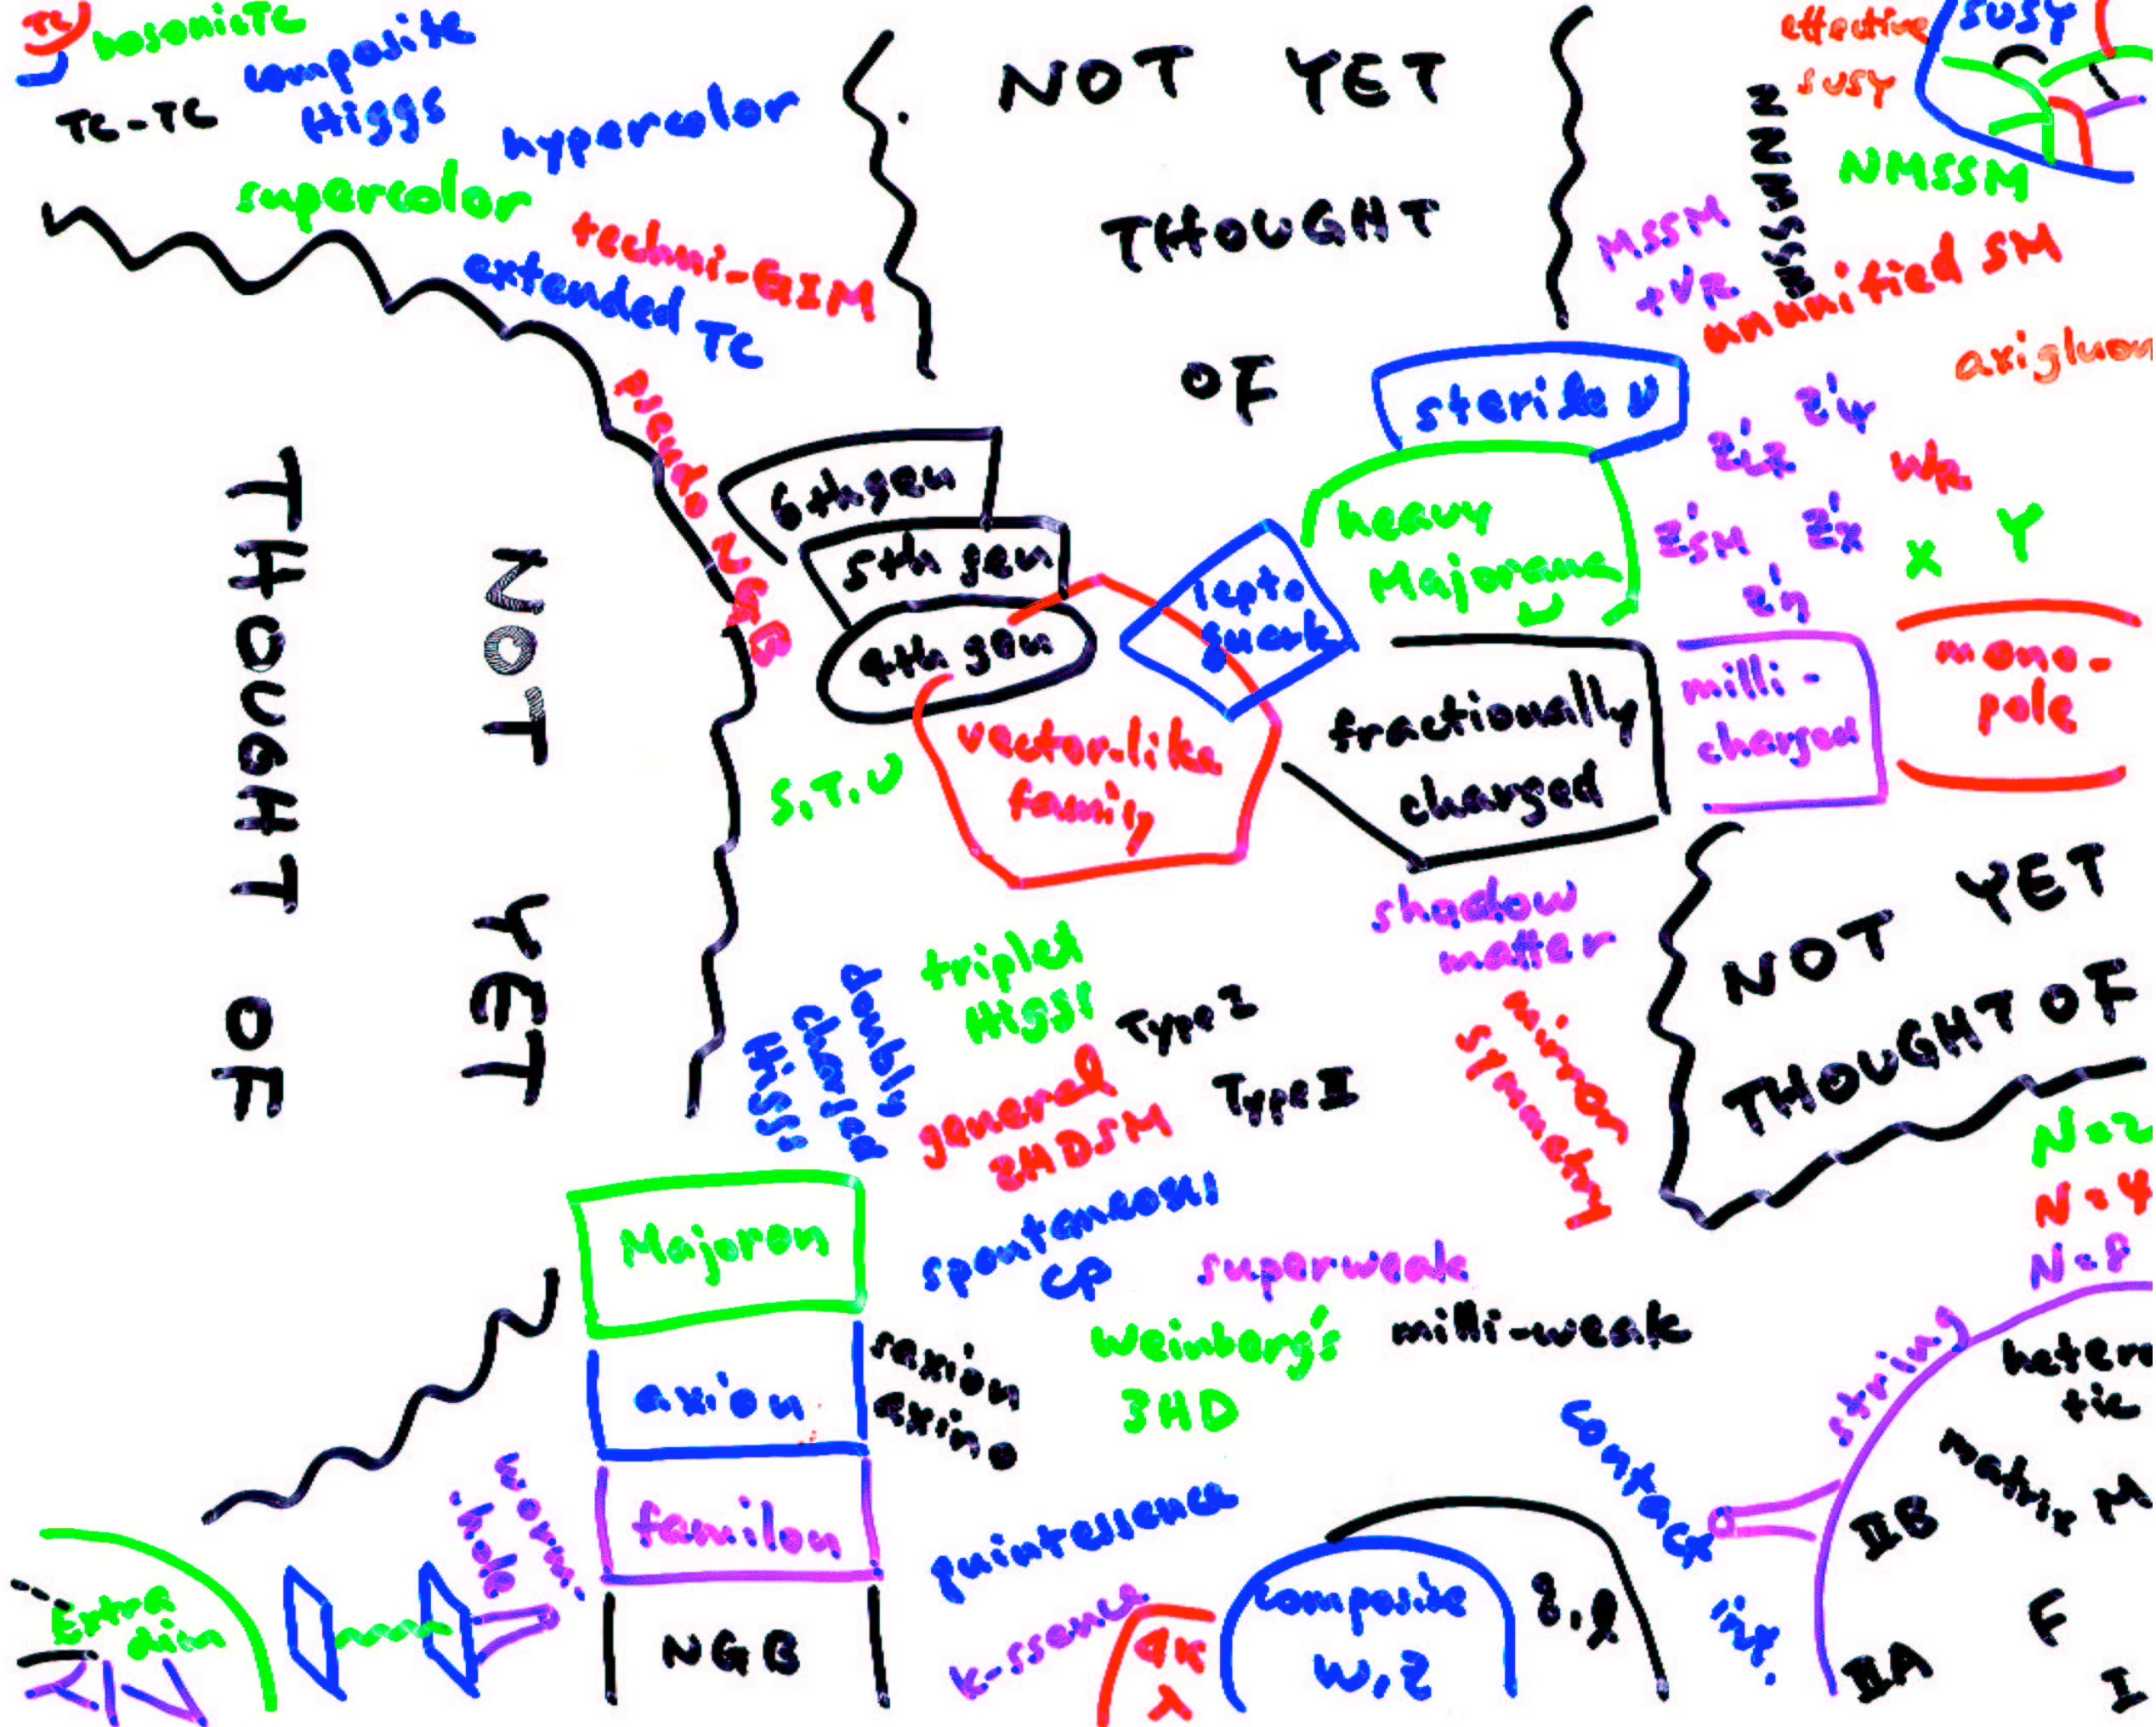 TC
bosonicTC
composite
Higgs
TC-TC
hypercolor
supercolor
techni-GIM
extended
TC
pseudo NGB
NOT YET
THOUGHT
OF
effective
SUSY
SUSY
NNMSSM
NMSSM
MSSM
+νR
ununified SM
axigluon
sterile ν
Z'ψ
Z'LR
WR
Z'SM
Z'χ
Z'η
X
Y
6th gen
5th gen
4th gen
lepto
quark
heavy
Majorana
ν
vector-like
family
S.T.U
fractionally
charged
milli-
charged
mono-
pole
NOT YET
THOUGHT OF
NOT YET
THOUGHT OF
shadow
matter
mirror
symmetry
triplet
Higgs
doubly
charged
Higgs
Type I
Type II
general
2HDSM
spontaneous
CP
superweak
milli-weak
Weinberg's
3HD
N=2
N=4
N=8
Majoron
axion
saxion
axino
familon
NGB
quintessence
k-ssence
worm
hole
Extra
dim
composite
W,Z
q,l
string
hetero
tic
Matrix M
IIB
IIA
F
I